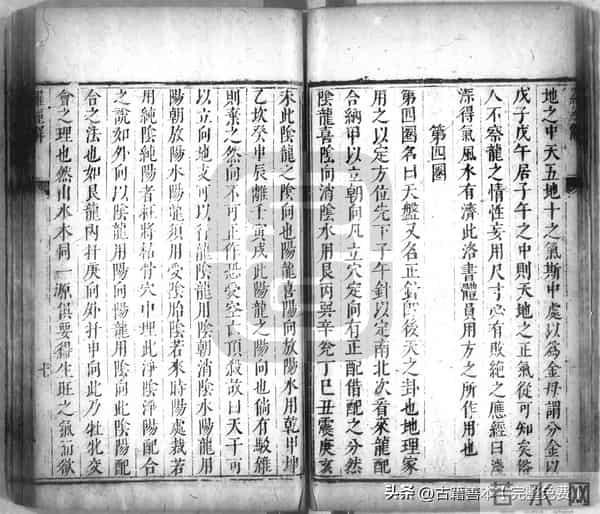 地之中天五地十之氣斯中處以為金母謂分金以
戊子戊午居子午之中則天地之正氣從可知矣俗
人不察龍之情性妄用尺寸必有敗絕之應經曰淺
深得氣風水有濟此洛書體員用方之所作用也
第四圈
第四圈名曰天盤又名正針即後天之卦也地理家
用之以定方位先下子午針以定南北次看來龍配
合納甲以立朝向凡立穴定向有正配借配之分然
陰龍喜陰向消陰水用艮丙巽辛兌丁巳丑震庚亥
未此陰龍之陰向也陽龍喜陽向放陽水用乾甲坤
乙坎癸申辰離壬寅戌此陽龍之陽向也倘有駁雜
則棄之然向不可正作恐受空亡頂殺故曰天干可
以立向地支可以行龍陰龍用陰朝消陰水陽龍用
陽朝放陽水陽龍須用受陰胎陰若來時陽處裁若
用純陰純陽者祇將枯骨穴中埋此淨陰淨陽配合
之說如外向以陰龍用陽向陽龍用陰向此陰陽配
合之法也如艮龍內扦庚向外扦甲向此乃牝牡交
會之理也然山水本同一源俱要得生旺之氣而獄
羅經解
十
头条 @古籍善本 完整免费